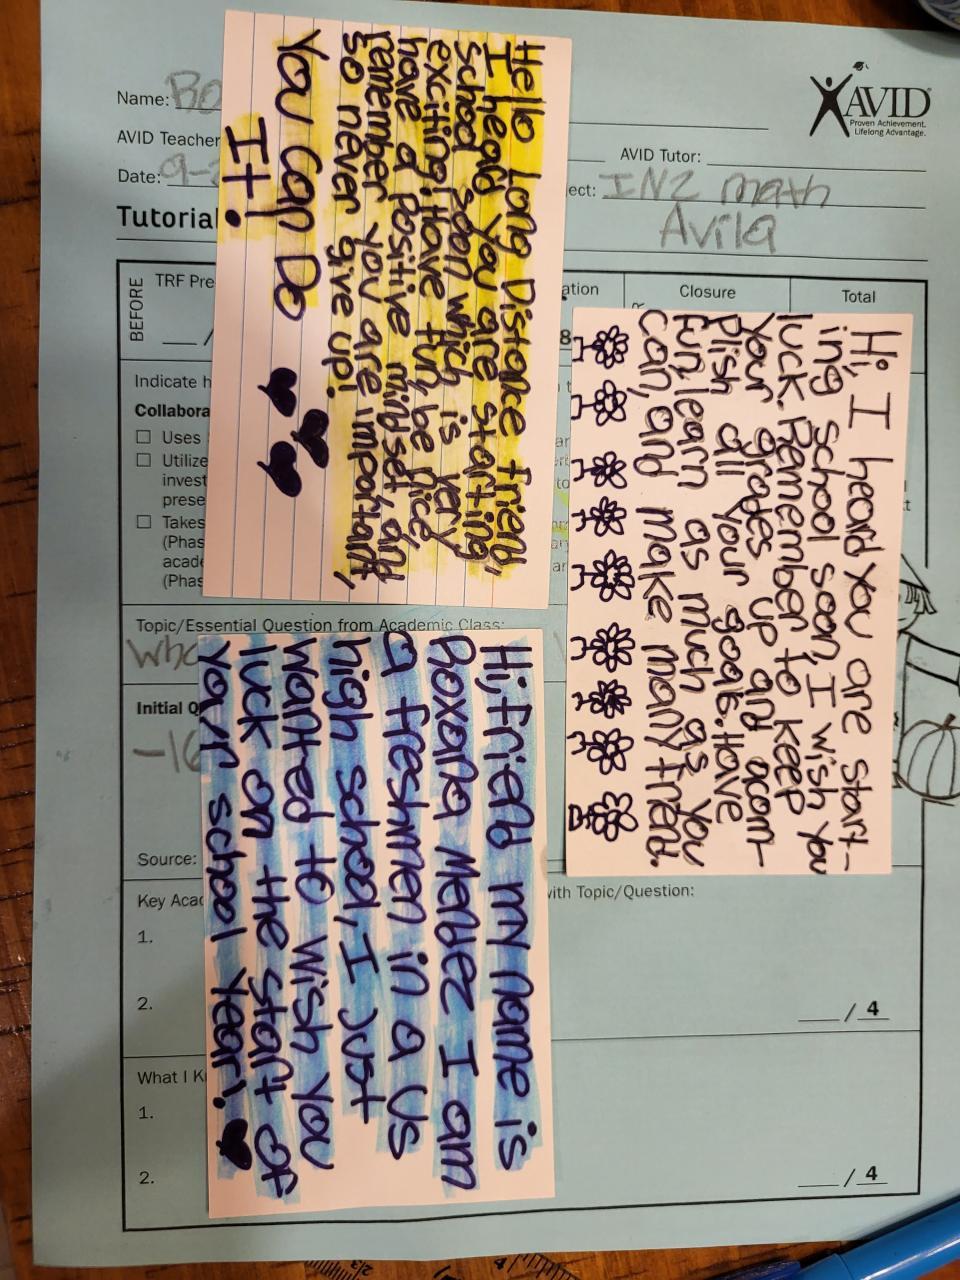 Name: Ro
AVID
Proven Achievement.
Lifelong Advantage.
AVID Teacher
AVID Tutor:
Date: 9-2
ect: IN2 math
Avila
Tutorial
BEFORE
TRF Pre
ation
Closure
Total
8
Indicate h
Collabora
Uses
Utilize
invest
prese
Takes
(Phas
acade
(Phas
Topic/Essential Question from Academic Class:
Wha
Initial Q
-16
Source:
Key Acad
with Topic/Question:
1.
2.
/ 4
What I K
1.
2.
/ 4
Hello Long Distance friend,
I heard you are starting
school soon which is very
exciting! Have fun, be nice,
have a positive mindset, and
remember you are important,
so never give up!
You Can Do
It!
Hi, I heard you are start-
ing school soon, I wish you
luck. Remember to keep
your grades up and acom-
plish all your goals. Have
fun, learn as much as you
can, and make many friend.
Hi, friend my name is
Roxana Mendez I am
a freshmen in a US
high school, I just
wanted to wish you
luck on the start of
your school year!